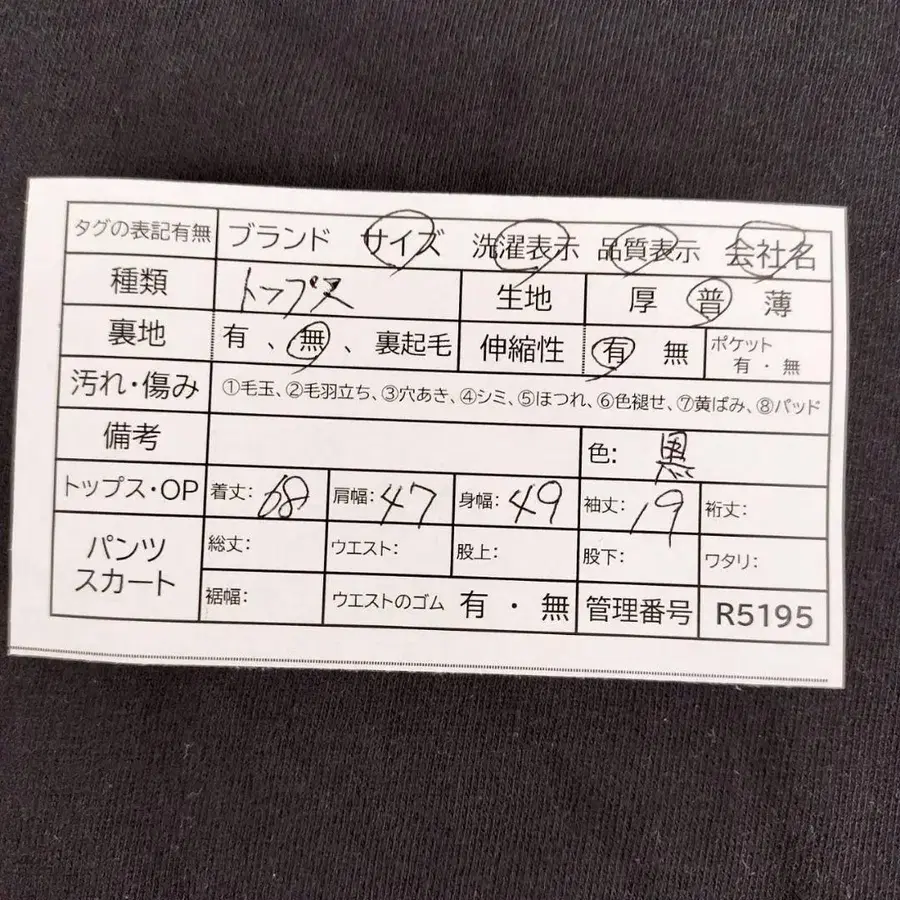 タグの表記有無 ブランド サイズ 洗濯表示 品質表示 会社名
種類 トップス 生地 厚 普 薄
裏地 有 、 無 、 裏起毛 伸縮性 有 無 ポケット 有 ・ 無
汚れ・傷み ①毛玉、②毛羽立ち、③穴あき、④シミ、⑤ほつれ、⑥色褪せ、⑦黄ばみ、⑧パッド
備考 色: 黒
トップス・OP 着丈: 68 肩幅: 47 身幅: 49 袖丈: 19 裄丈:
パンツ スカート 総丈: ウエスト: 股上: 股下: ワタリ:
裾幅: ウエストのゴム 有 ・ 無 管理番号 R5195